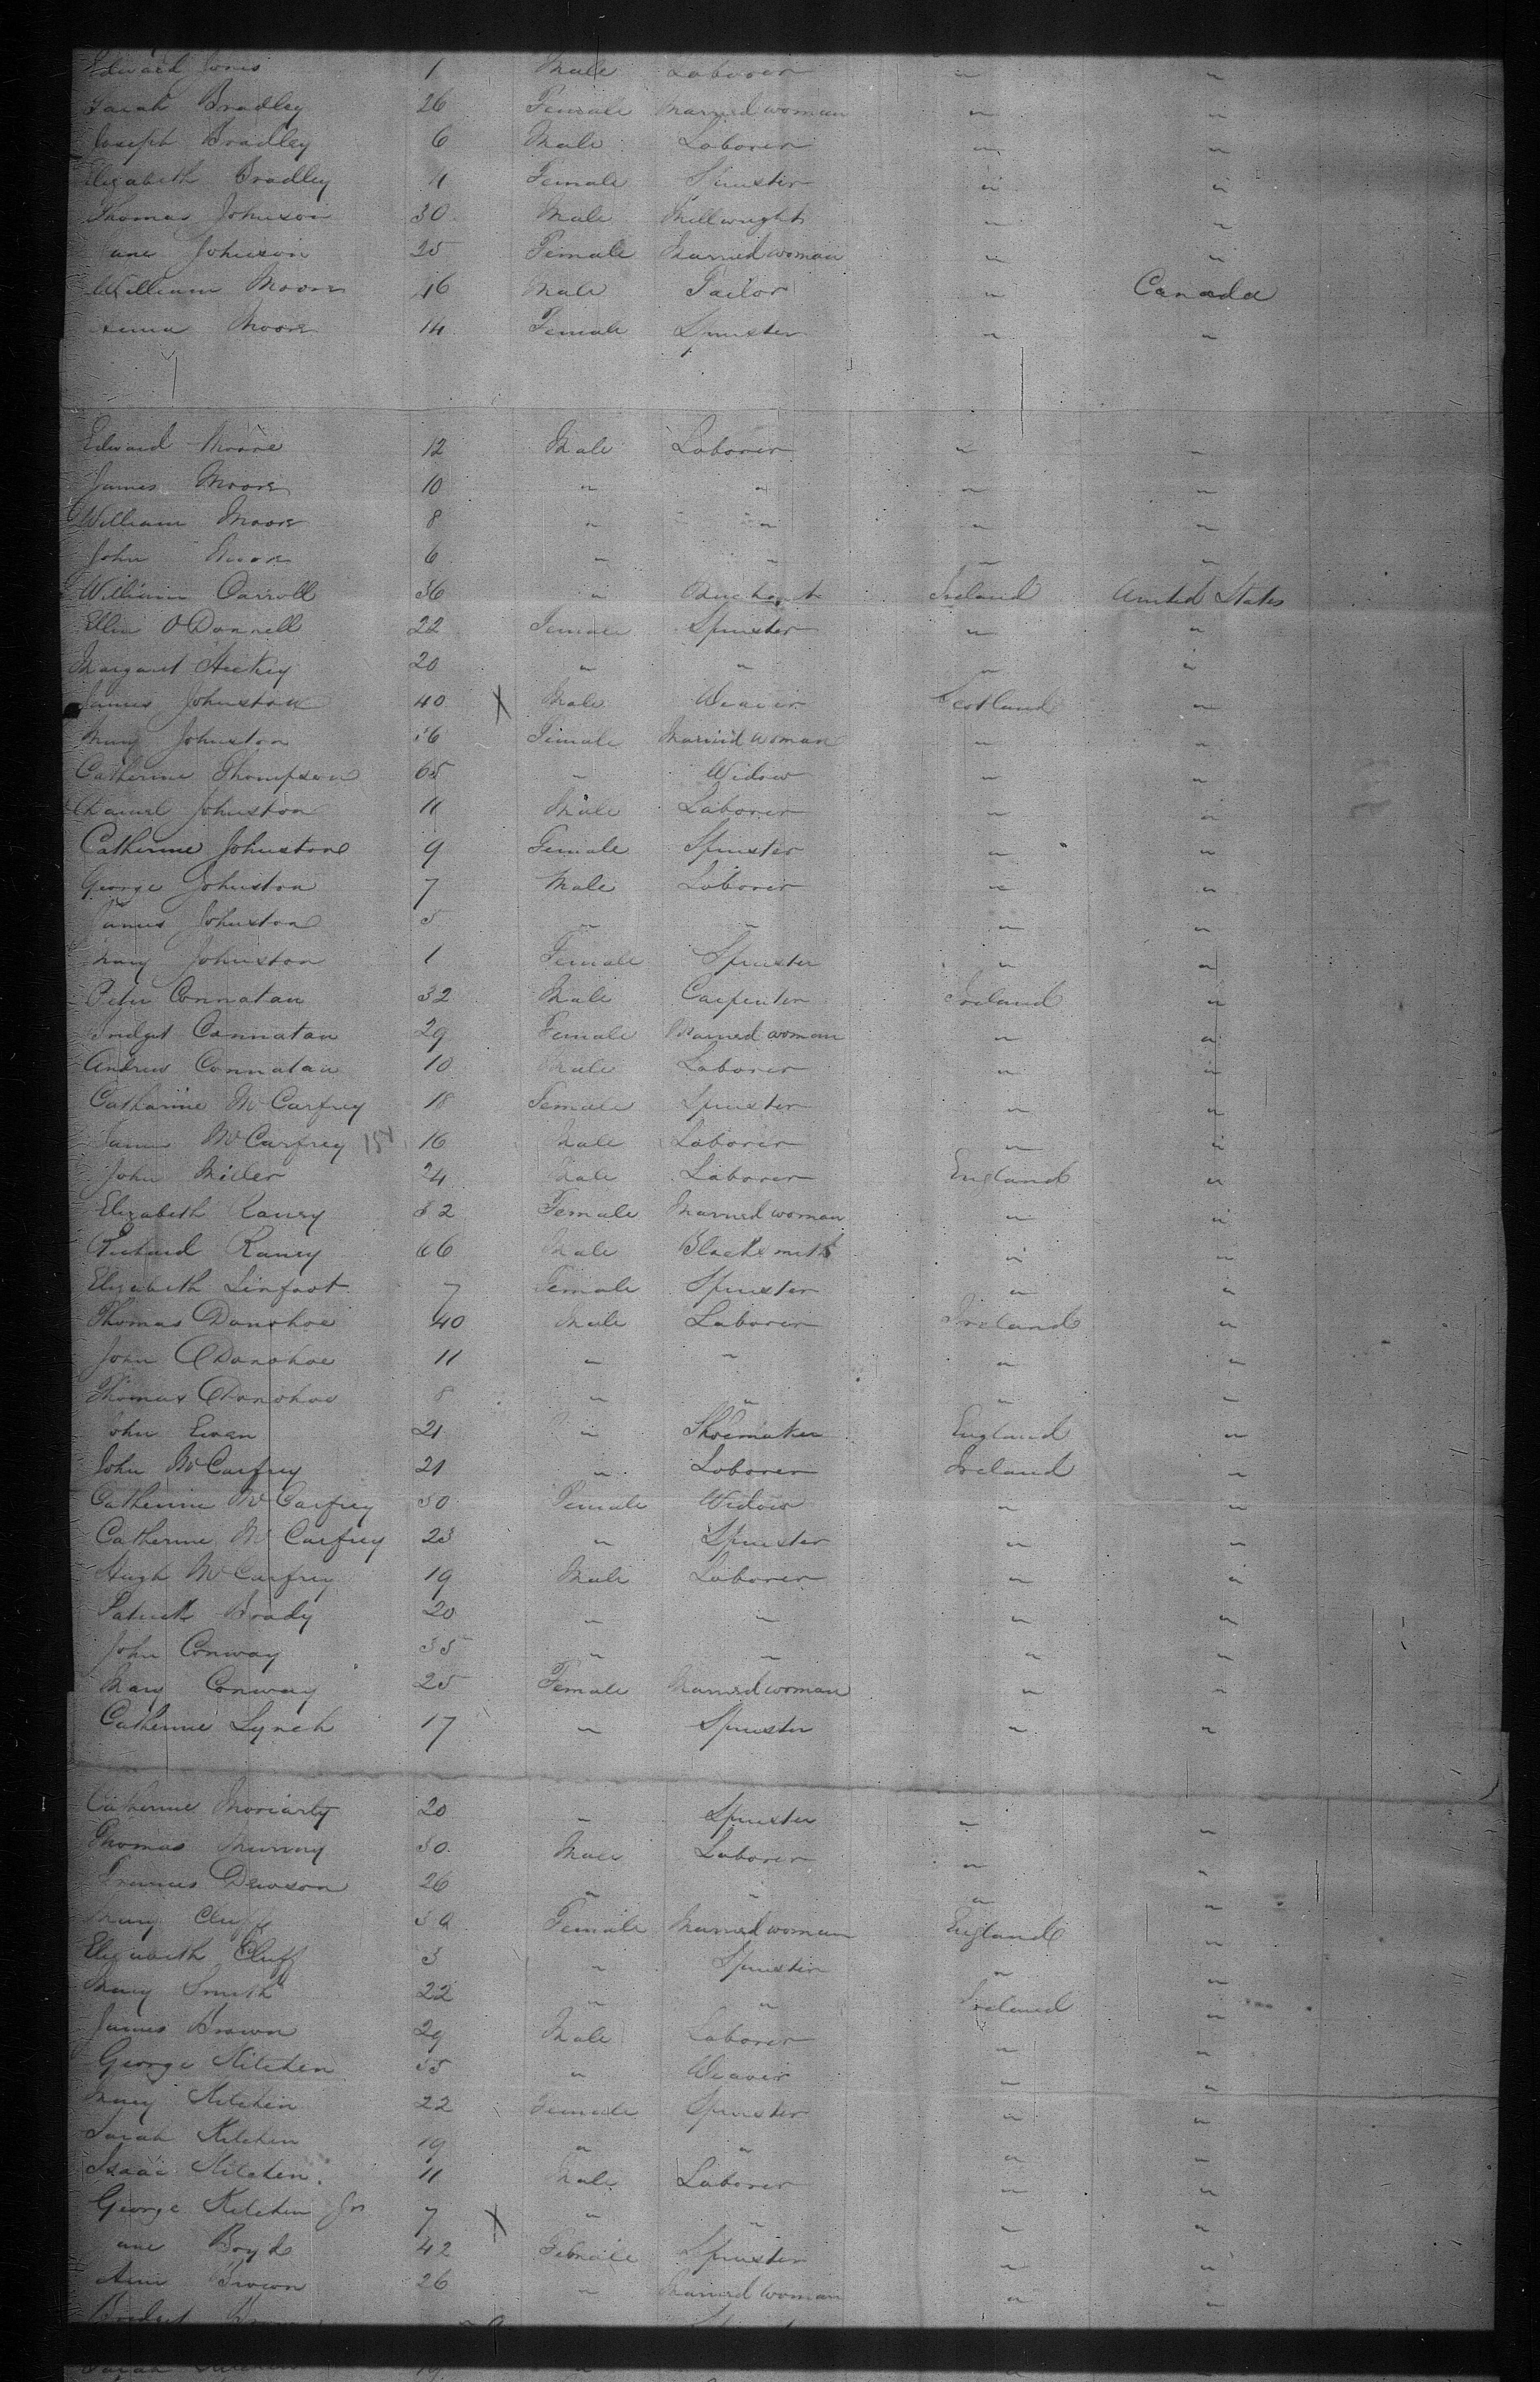 Edward Jones 1 Male Laborer " "
Sarah Bradley 26 Female Married woman " "
Joseph Bradley 6 Male Laborer " "
Elizabeth Bradley 4 Female Spinster " "
Thomas Johnson 30 Male Millwright " "
Jane Johnson 25 Female Married woman " "
William Moore 46 Male Tailor " Canada
Anna Moore 14 Female Spinster " "
Edward Moore 12 Male Laborer " "
James Moore 10 " " " "
William Moore 8 " " " "
John Moore 6 " " " "
William Carroll 36 " Ireland United States
Ellen O'Donnell 22 Female Spinster " "
Margaret Hickey 20 " " " "
James Johnston 40 X Male Weaver Scotland "
Mary Johnston 36 Female Married woman " "
Catherine Thompson 65 " Widow " "
Johnston 11 Male Laborer " "
Catherine Johnston 9 Female Spinster " "
George Johnston 7 Male Laborer " "
James Johnston 5 " " " "
Mary Johnston 1 Female Spinster " "
Peter Connatan 32 Male Carpenter Ireland "
Bridget Connatan 29 Female Married woman " "
Andrew Connatan 10 Male Laborer " "
Catharine McCarfrey 18 Female Spinster " "
McCarfrey 16 Male Laborer " "
John Miller 24 Male Laborer England "
Elizabeth Raney 52 Female Married woman " "
Richard Raney 66 Male Blacksmith " "
Elizabeth Linfoot 7 Female Spinster " "
Thomas Donohoe 40 Male Laborer Ireland "
John O'Donohoe 11 " " " "
Thomas O'Donohoe 8 " " " "
John Ewan 21 " Shoemaker England "
John McCarfrey 21 " Laborer Ireland "
Catherine McCarfrey 50 Female Widow " "
Catherine McCarfrey 23 " Spinster " "
Hugh McCarfrey 19 Male Laborer " "
Patrick Brady 20 " " " "
John Conway 35 " " " "
Mary Conway 25 Female Married woman " "
Catherine Lynch 17 " Spinster " "
Catherine Moriarty 20 " Spinster " "
Thomas Murray 30 Male Laborer " "
Dawson 26 " " " "
Mary Cluff 30 Female Married woman England "
Elizabeth Cluff 3 " Spinster " "
Mary Smith 22 " " Ireland "
James Brown 29 Male Laborer " "
George Kitchen 55 " Weaver " "
Mary Kitchen 22 Female Spinster " "
Sarah Kitchen 19 " " " "
Isaac Kitchen 11 Male Laborer " "
George Kitchen Jr 7 X " " " "
Jane Boyd 42 Female Spinster " "
Ann Brown 26 " Married woman " "
Bridget
Sarah Kitchen 19 "